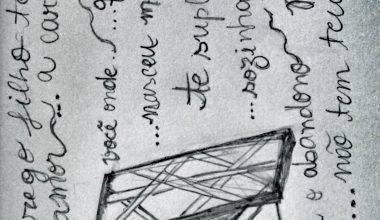 ...rago filho te
amor ~ ... a cur
você onde ~ ...
...nasceu m
te supl
...sozinha
o abandono ~
...não tem teu